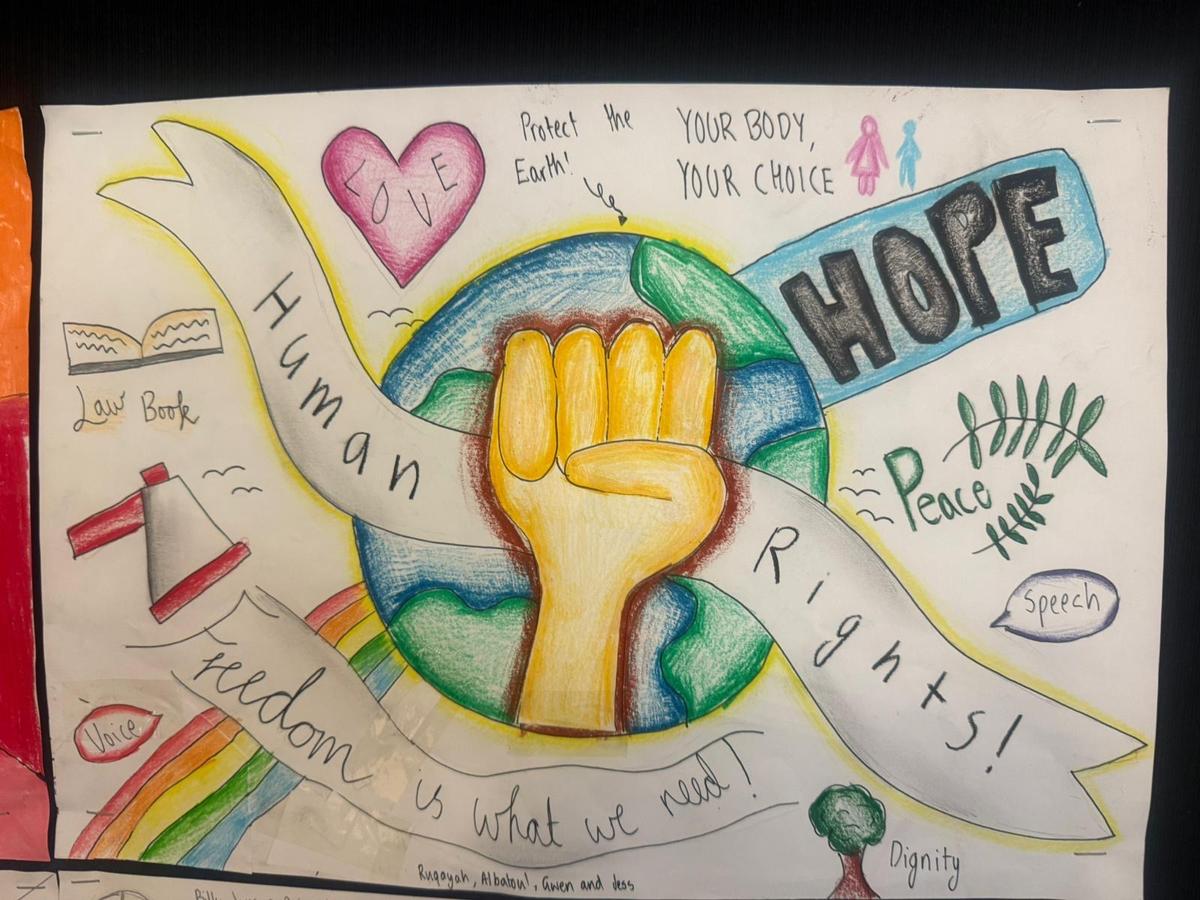 Protect the
Earth!
YOUR BODY,
YOUR CHOICE
LOVE
HOPE
Human
Rights!
Law Book
Peace
Speech
Voice
Freedom is what we need!
Dignity
Ruqayah, Albatoul, Gwen and Jess